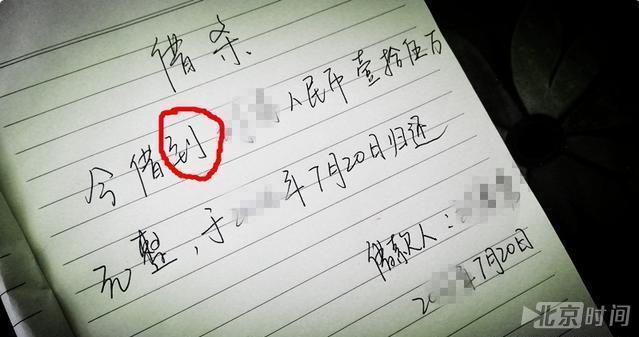 借条
今借到 人民币壹拾伍万
元整,于 年7月20日归还
借款人:
20 年7月20日
北京时间